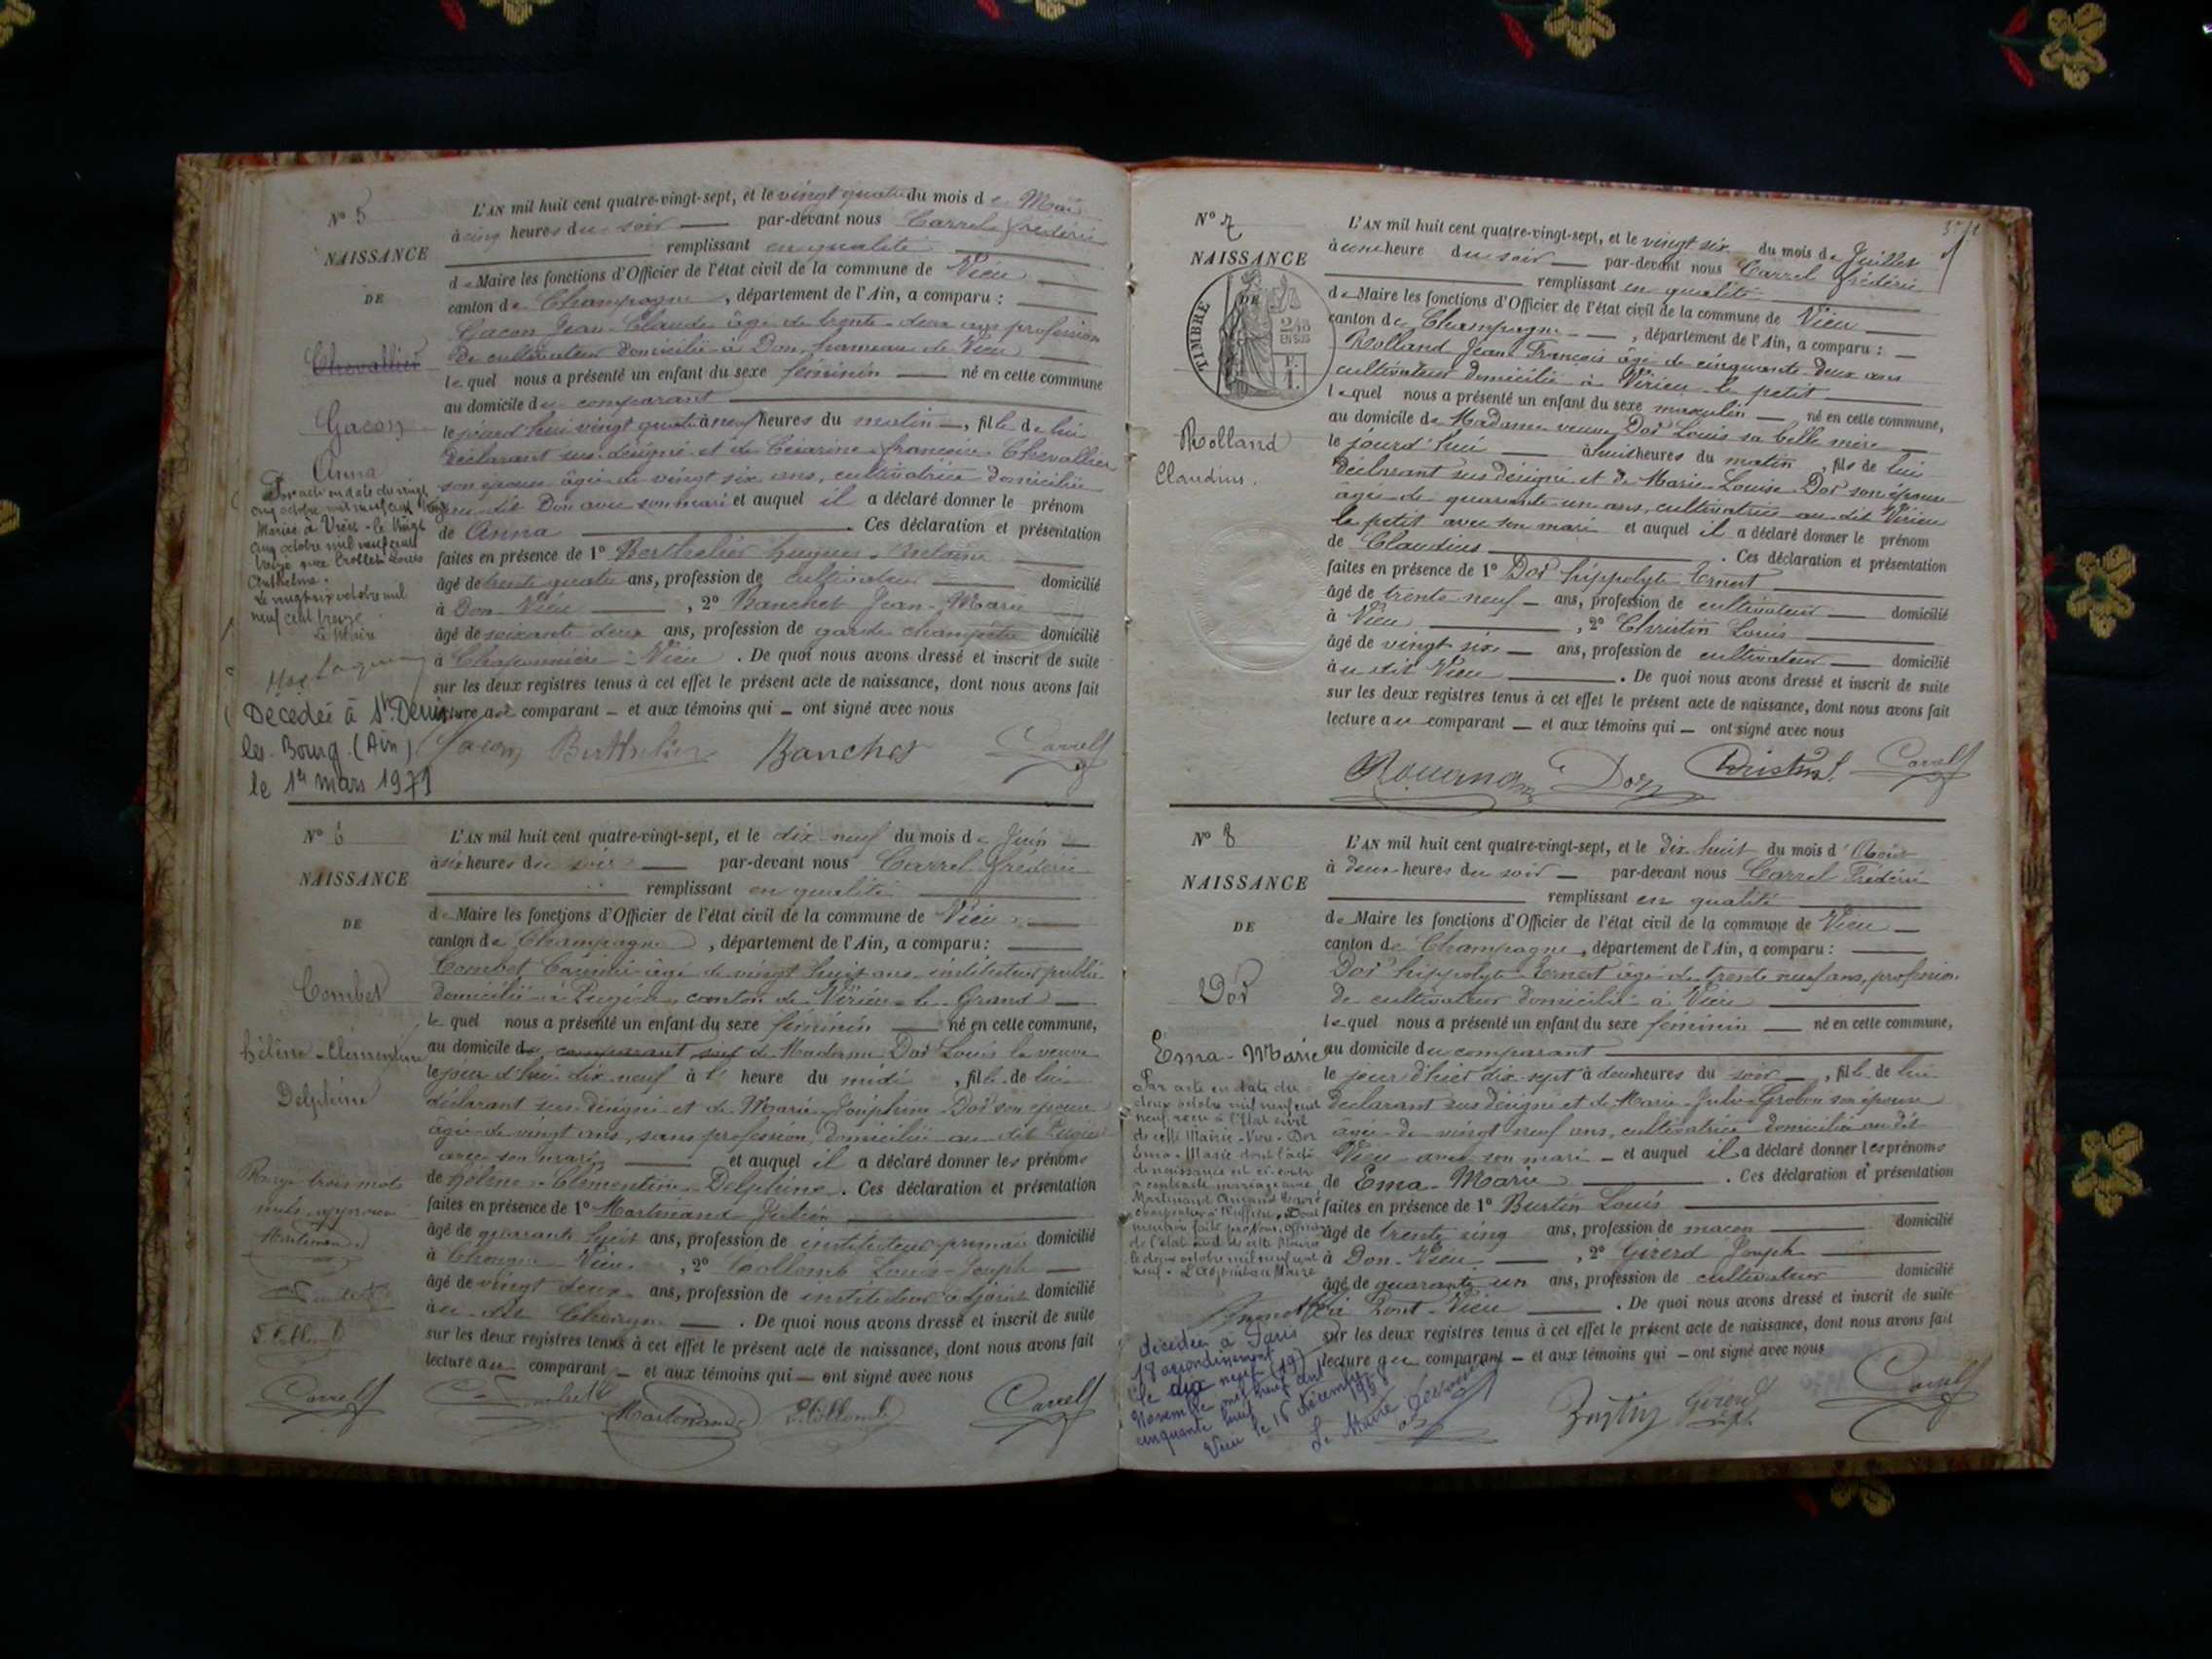 N° 5
NAISSANCE
DE
Chevallier
Gacon
Anna
L'AN mil huit cent quatre-vingt-sept, et le vingt quatre du mois de Mai
à cinq heures du soir par-devant nous Carrel frédéric
remplissant en qualité
de Maire les fonctions d'Officier de l'état civil de la commune de Vieu
canton de Champagne, département de l'Ain, a comparu :
Gacon Jean-Claude âgé de trente-deux ans profession
de cultivateur domicilié à Don, hameau de Vieu
lequel nous a présenté un enfant du sexe féminin né en cette commune
au domicile du comparant
le jourd'hui vingt quatre à neuf heures du matin, fille de lui
déclarant sus-désigné et de Césarine françoise Chevallier
son épouse âgée de vingt six ans, cultivatrice domiciliée
dit Don avec son mari et auquel il a déclaré donner le prénom
de Anna. Ces déclaration et présentation
faites en présence de 1° Berthelier hugues-Antoine
âgé de trente quatre ans, profession de cultivateur domicilié
à Don-Vieu, 2° Banchet Jean-Marie
âgé de soixante deux ans, profession de garde champêtre domicilié
à Chavornière-Vieu. De quoi nous avons dressé et inscrit de suite
sur les deux registres tenus à cet effet le présent acte de naissance, dont nous avons fait
lecture au comparant – et aux témoins qui – ont signé avec nous
Par acte en date du vingt
cinq octobre mil neuf cent treize
Mariée à Vieu-le vingt
cinq octobre mil neuf cent
treize avec Crollet Louis
Anthelme.
Le vingt six octobre mil
neuf cent treize
Le Maire
Décédée à St Denis
les-Bourg (Ain)
le 1er mars 1979
Gacon Berthelier Banchet Carrel f
N° 6
NAISSANCE
DE
Combet
hélène-Clémentine
Delphine
L'AN mil huit cent quatre-vingt-sept, et le dix-neuf du mois de Juin
à six heures du soir par-devant nous Carrel frédéric
remplissant en qualité
de Maire les fonctions d'Officier de l'état civil de la commune de Vieu
canton de Champagne, département de l'Ain, a comparu :
Combet âgé de vingt huit ans instituteur public
domicilié à Pugieu, canton de Virieu-le-Grand
lequel nous a présenté un enfant du sexe féminin né en cette commune,
au domicile du comparant sus de Madame Dor Louis la veuve
le jour d'hui dix-neuf à 1 heure du midi, fille de lui
déclarant sus-désigné et de Marie-Joséphine Dor son épouse
âgée de vingt ans, sans profession, domiciliée au-dit Pugieu
avec son mari et auquel il a déclaré donner les prénoms
de hélène-Clémentine-Delphine. Ces déclaration et présentation
faites en présence de 1° Martinand Julien
âgé de quarante huit ans, profession de instituteur primaire domicilié
à Chongne Vieu, 2° Collomb Louis-Joseph
âgé de vingt deux ans, profession de instituteur adjoint domicilié
au-dit Chongne. De quoi nous avons dressé et inscrit de suite
sur les deux registres tenus à cet effet le présent acte de naissance, dont nous avons fait
lecture au comparant – et aux témoins qui – ont signé avec nous
Rayé trois mots
nuls approuvé
Martinand
Combet
Collomb
Carrel f Combet Martinand Collomb Carrel f
N° 7
NAISSANCE
DE
TIMBRE
Rolland
Claudius.
L'AN mil huit cent quatre-vingt-sept, et le vingt six du mois de Juillet
à une heure du soir par-devant nous Carrel frédéric
remplissant en qualité
de Maire les fonctions d'Officier de l'état civil de la commune de Vieu
canton de Champagne, département de l'Ain, a comparu :
Rolland Jean François âgé de cinquante deux ans
cultivateur domicilié à Virieu-le-petit
lequel nous a présenté un enfant du sexe masculin né en cette commune,
au domicile de Madame veuve Dor Louis sa belle mère
le jourd'hui à huit heures du matin, fils de lui
déclarant sus désigné et de Marie-Louise Dor son épouse
âgée de quarante un ans, cultivatrice au-dit Virieu
le petit avec son mari et auquel il a déclaré donner le prénom
de Claudius. Ces déclaration et présentation
faites en présence de 1° Dor hippolyte Ernest
âgé de trente neuf ans, profession de cultivateur domicilié
à Vieu, 2° Christin Louis
âgé de vingt six ans, profession de cultivateur domicilié
au dit Vieu. De quoi nous avons dressé et inscrit de suite
sur les deux registres tenus à cet effet le présent acte de naissance, dont nous avons fait
lecture au comparant – et aux témoins qui – ont signé avec nous
Dor Christin L. Carrel f
N° 8
NAISSANCE
DE
Dor
Ema-Marie
L'AN mil huit cent quatre-vingt-sept, et le dix huit du mois d'Août
à deux heures du soir par-devant nous Carrel Frédéric
remplissant en qualité
de Maire les fonctions d'Officier de l'état civil de la commune de Vieu
canton de Champagne, département de l'Ain, a comparu :
Dor hippolyte-Ernest âgé de trente neuf ans, profession
de cultivateur domicilié à Vieu
lequel nous a présenté un enfant du sexe féminin né en cette commune,
au domicile du comparant
le jour d'hier dix-sept à deux heures du soir, fille de lui
déclarant sus désigné et de Marie-Julie Grobon son épouse
âgée de vingt neuf ans, cultivatrice domiciliée au dit
Vieu avec son mari et auquel il a déclaré donner les prénoms
de Ema-Marie. Ces déclaration et présentation
faites en présence de 1° Burtin Louis
âgé de trente cinq ans, profession de maçon domicilié
à Don-Vieu, 2° Girerd Joseph
âgé de quarante un ans, profession de cultivateur domicilié
Pont-Vieu. De quoi nous avons dressé et inscrit de suite
sur les deux registres tenus à cet effet le présent acte de naissance, dont nous avons fait
lecture au comparant – et aux témoins qui – ont signé avec nous
Par acte en date du
deux octobre mil neuf cent
neuf reçu à l'Etat civil
de cette Mairie-Vieu-Dor
Ema-Marie dont l'acte
de naissance est ci-contre
a contracté mariage avec
Martinand Amand
charpentier à Ruffieu. Dont
mention faite par Nous, officier
de l'état civil de cette Mairie
le deux octobre mil neuf cent
neuf. L'adjoint au Maire
décédée à Paris
18 arrondissement
le dix sept (19)
Novembre mil neuf cent
cinquante huit
Vieu le 16 décembre 1958
Le Maire
Burtin Girerd Carrel f